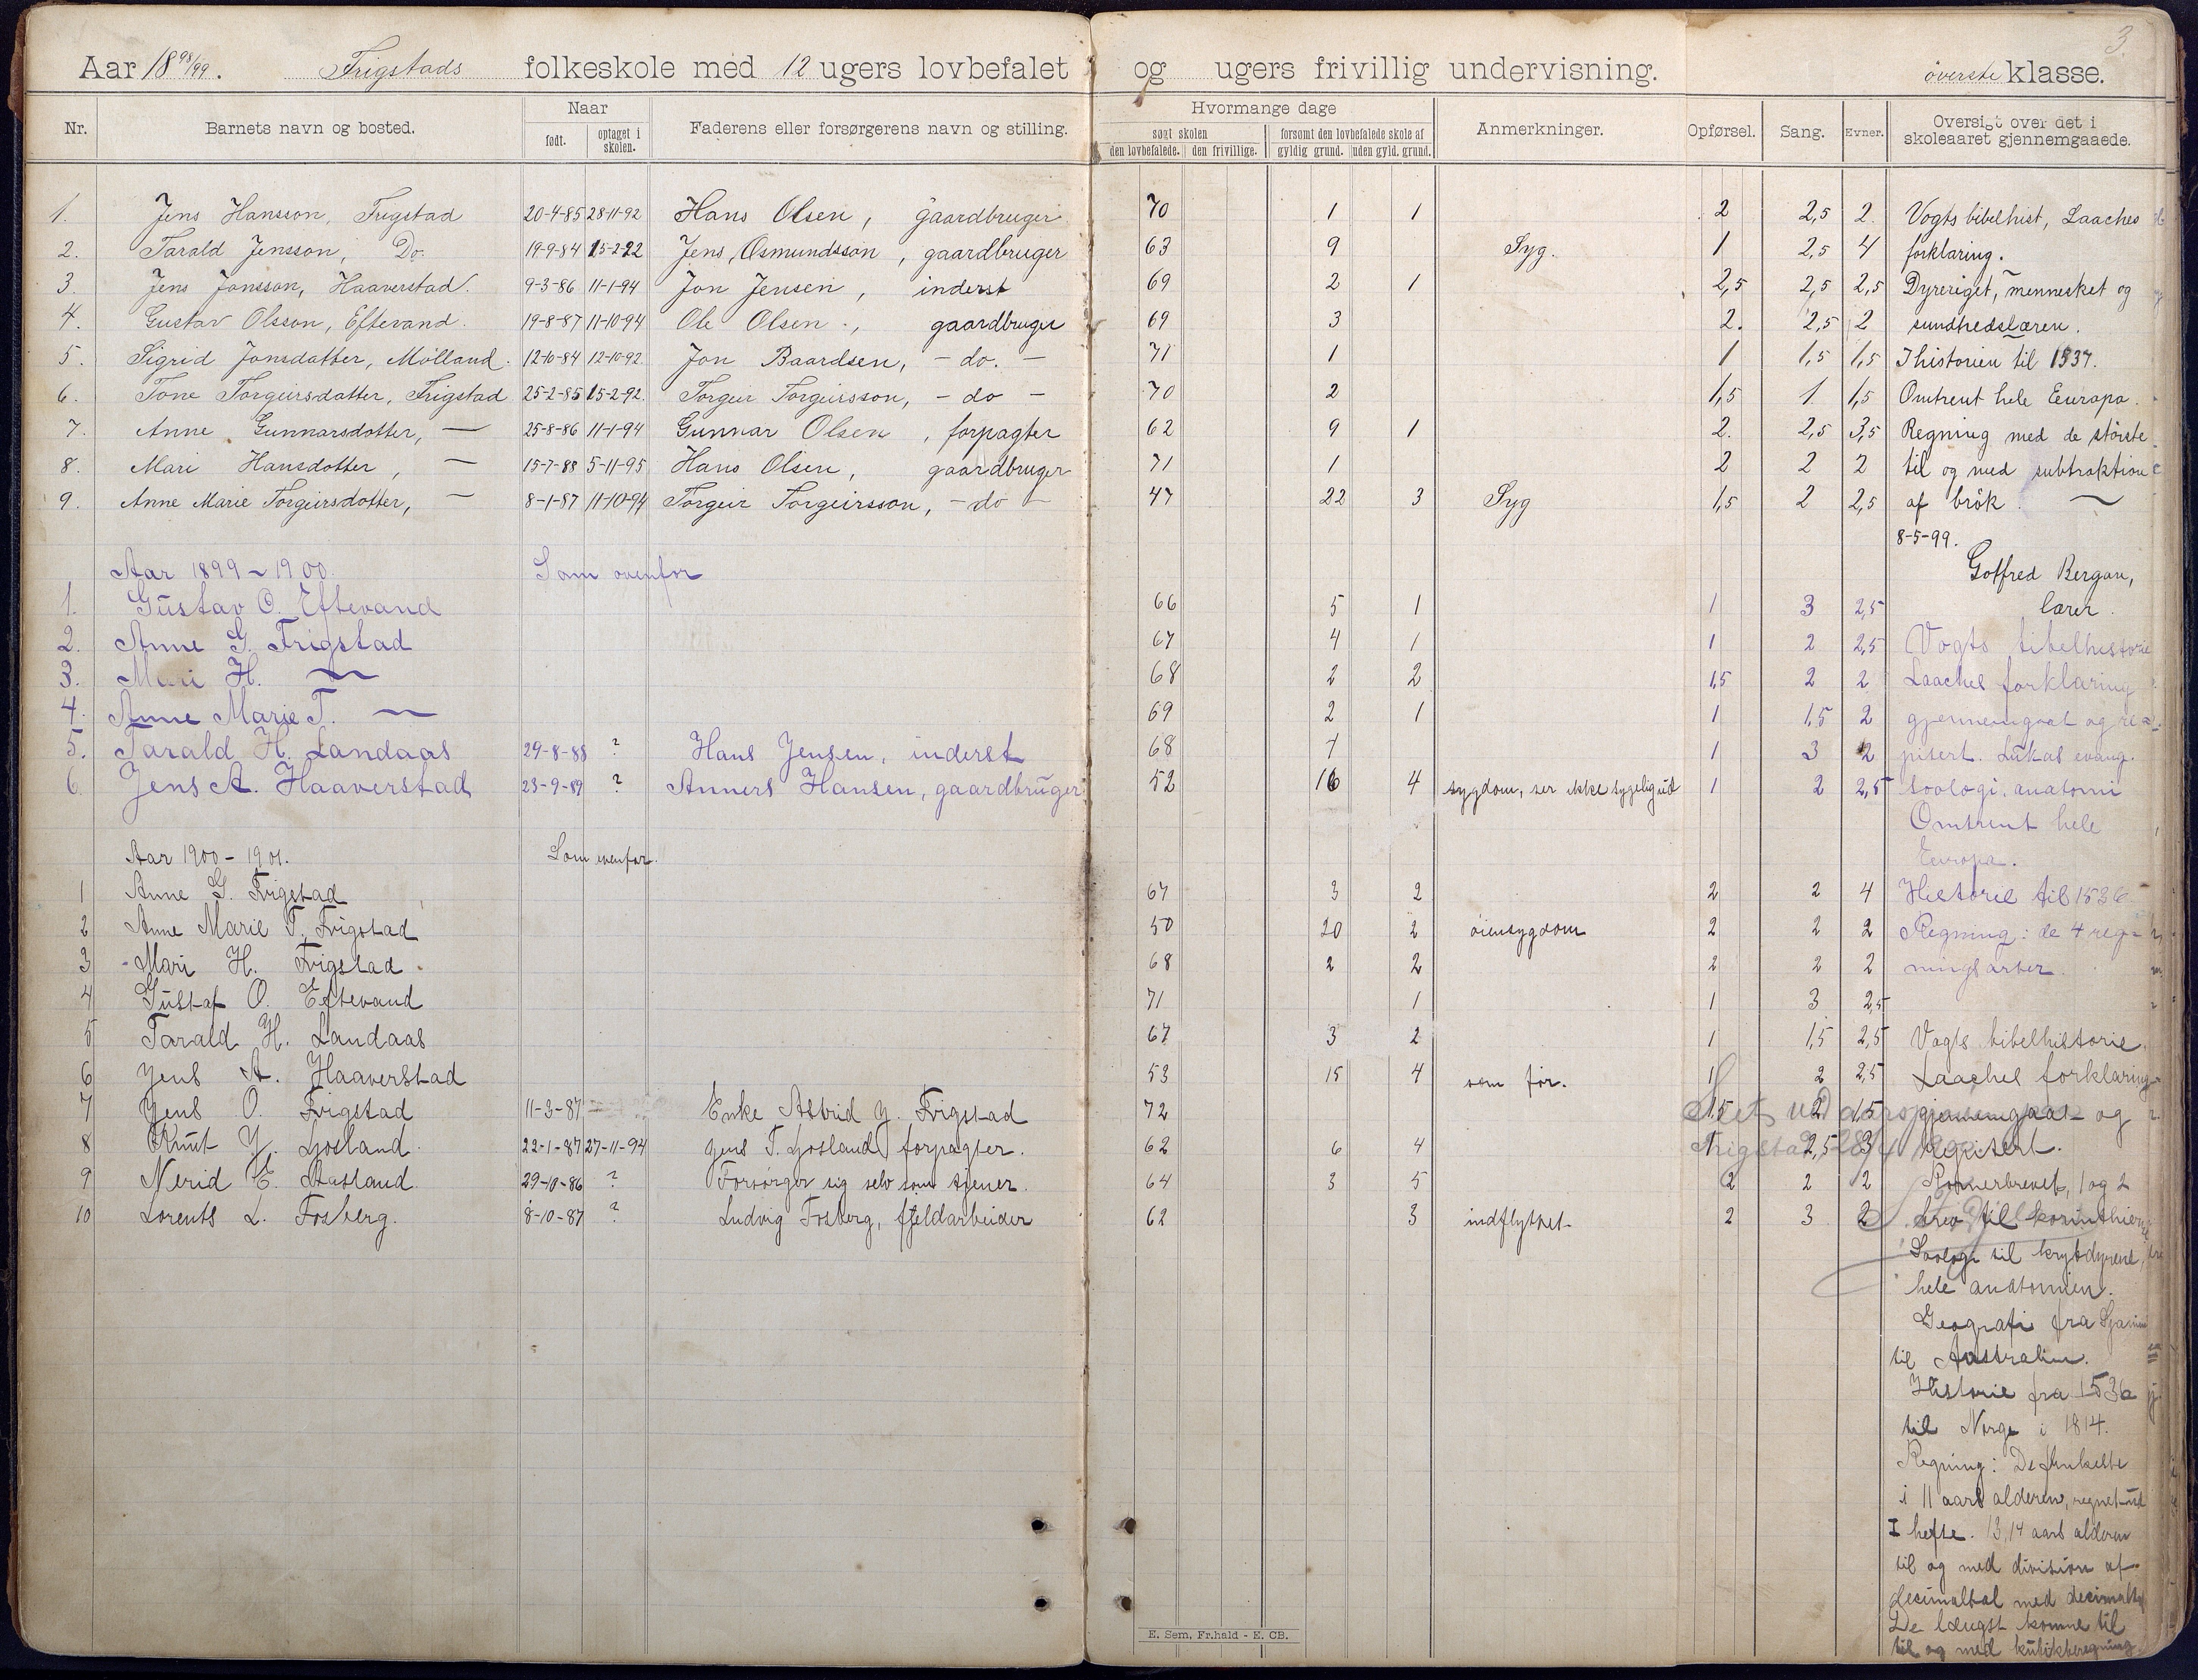 3.
Aar 1898/99. Frigstads folkeskole med 12 ugers lovbefalet og ugers frivillig undervisning. överste klasse.
Nr. Barnets navn og bosted. Naar født. optaget i skolen. Faderens eller forsørgerens navn og stilling. Hvormange dage søgt skolen den lovbefalede. den frivillige. forsømt den lovbefalede skole af gyldig grund. uden gyld. grund. Anmerkninger. Opførsel. Sang. Evner. Oversigt over det i skoleaaret gjennemgaaede.
1. Jens Hansson, Frigstad 20-4-85 28-11-92 Hans Olsen, gaardbruger 70 1 1 2 2,5 2 Vogts bibelhist, Laaches
2. Tarald Jensson, Do. 19-9-84 15-2-92 Jens Osmundsson, gaardbruger 63 9 Syg. 1 2,5 4 forklaring.
3. Jens Jonsson, Haaverstad. 9-3-86 11-1-94 Jon Jensen, inderst 69 2 1 2,5 2,5 2,5 Dyreriget, mennesket og
4. Gustav Olsson, Eftevand. 19-8-87 11-10-94 Ole Olsen, gaardbruger 69 3 2. 2,5 2 sundhedslæren.
5. Sigrid Jonsdatter, Mölland. 12-10-84 12-10-92 Jon Baardsen, - do. - 71 1 1 1,5 1,5 I historien til 1537.
6. Tone Torgeirsdatter, Frigstad 25-2-85 15-2-92. Torgeir Torgeirsson, - do - 70 2 1,5 1 1,5 Omtrent hele Europa.
7. Anne Gunnarsdotter, — 25-8-86 11-1-94 Gunnar Olsen, forpagter 62 9 1 2. 2,5 3,5 Regning med de störste
8. Mari Hansdotter, — 15-7-88 5-11-95 Hans Olsen, gaardbruger 71 1 2 2 2 til og med subtraktion
9. Anne Marie Torgeirsdotter, — 8-1-87 11-10-94 Torgeir Torgeirsson, - do - 47 22 3 Syg 1,5 2 2,5 af brök.
8-5-99.
Aar 1899-1900. Som ovenfor Gotfred Bergan,
1. Gustav O. Eftevand 66 5 1 1 3 2,5 lærer.
2. Anne G. Frigstad 67 4 1 1 2 2,5 Vogts bibelhistorie
3. Mari H. — 68 2 2 1,5 2 2 Laaches forklaring
4. Anne Marie T. — 69 2 1 1 1,5 2 gjennemgaat og re-
5. Tarald H. Landaas 29-8-88 ? Hans Jensen, inderst 68 7 1 3 2 pisert. Lukas evang.
6. Jens A. Haaverstad 23-9-89 ? Anners Hansen, gaardbruger 52 16 4 sygdom, ser ikke sygelig ud 1 2 2,5 zoologi, anatomi
Omtrent hele
Aar 1900-1901. Som ovenfor. Europa.
1 Anne G. Frigstad 67 3 2 2 2 4 Historie til 1536
2 Anne Marie T. Frigstad 50 20 2 öiensygdom 2 2 2 Regning: de 4 reg-
3 Mari H. Frigstad 68 2 2 2 2 2 ningsarter.
4 Gustaf O. Eftevand 71 1 1 3 2,5
5 Tarald H. Landaas 67 3 2 1 1,5 2,5 Vogts bibelhistorie,
6 Jens A. Haaverstad 53 15 4 som för. 1 2 2,5 Laaches forklaring
7 Jens O. Frigstad 11-3-87 Enke Astrid J. Frigstad 72 1,5 2 1,5 gjennemgaat og
8 Knut J. Ljosland 22-1-87 27-11-94 Jens T. Ljosland forpagter. 62 6 4 1 2,5 3 repisert.
9 Nerid E. Aasland 29-10-86 ? Forsörger sig selv som tjener. 64 3 5 2 2 2 Romerbrevet, 1 og 2
10 Lorents L. Fosberg. 8-10-87 ? Ludvig Fosberg, fjeldarbeider 62 3 indflyttet 2 3 2 brev til korinthierne
Zoologi til krybdyrene,
hele anatomien.
Geografi fra Spanien
til Australien.
Historie fra 1536
til Norge i 1814.
Regning: De
i 11 aars alderen, regnet ud
I hefte. 13,14 aars alderen
til og med division af
desimaltal med desimaltal
De længst komne til
til og med kubikberegning.
E. Sem, Fr.hald - E. CB.